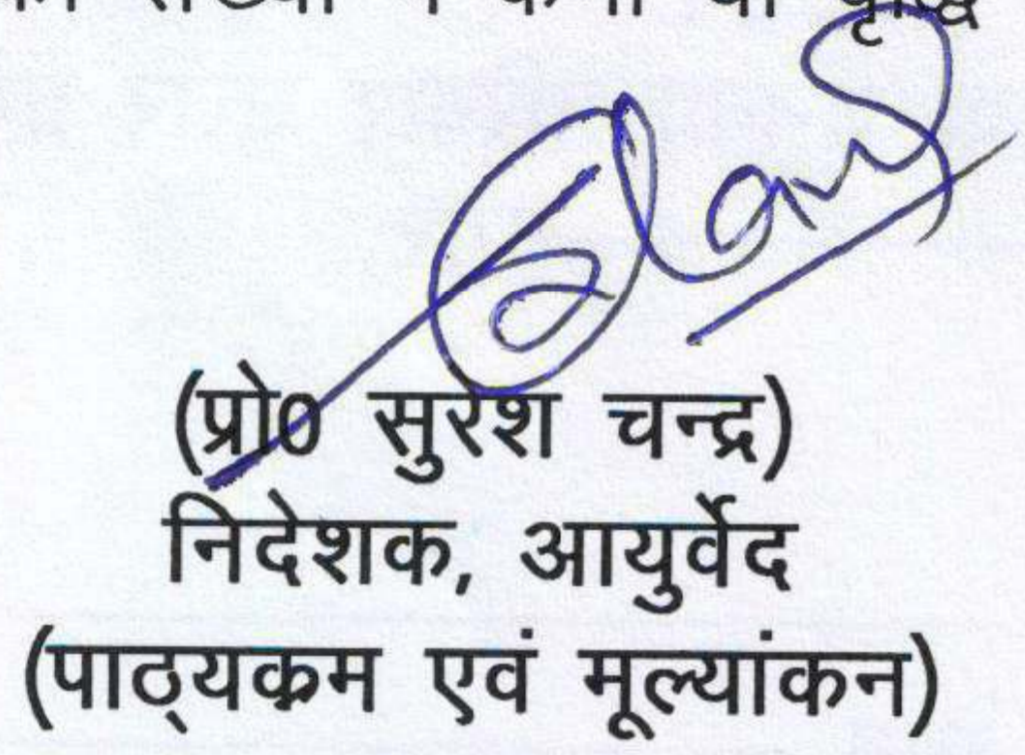 वृद्धि
(प्रो0 सुरेश चन्द्र)
निदेशक, आयुर्वेद
(पाठ्यक्रम एवं मूल्यांकन)